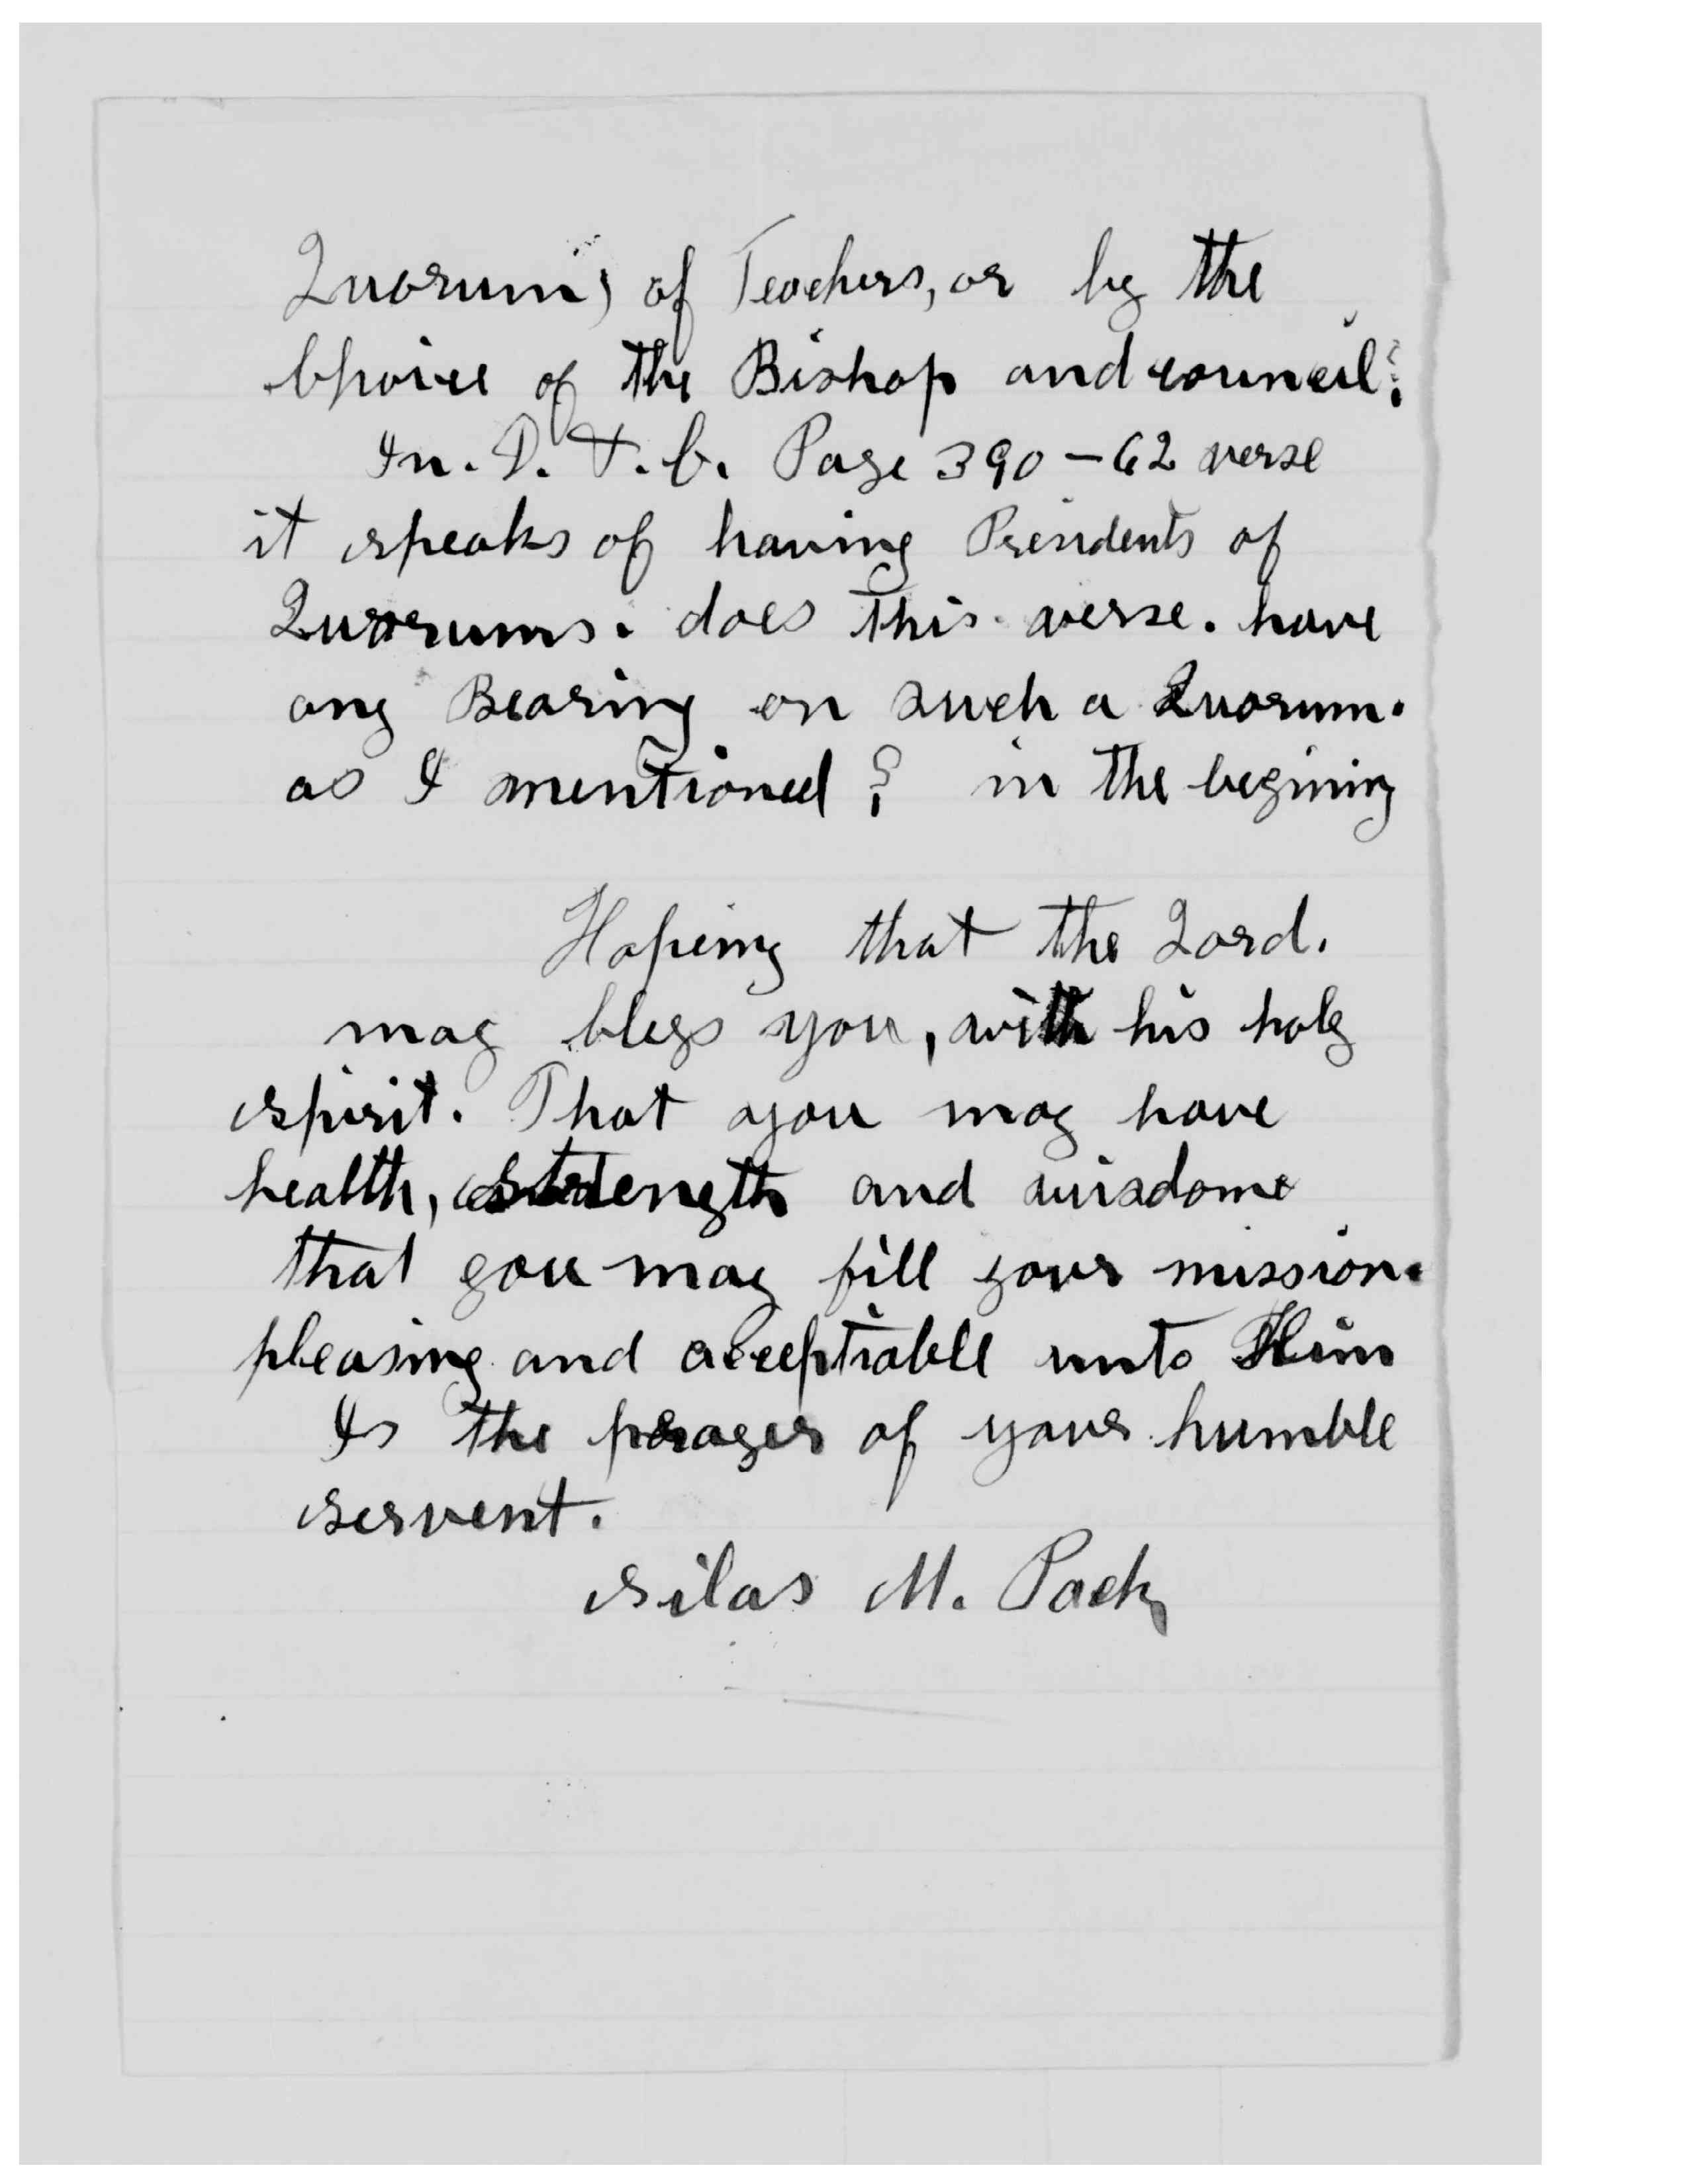 Quorum, of Teachers, or by the
Choice of the Bishop and council?
In. D. & C. Page 390 - 62 verse
it speaks of having Presidents of
Quorums. does this verse. have
any Bearing on such a Quorum.
as I mentioned? in the begining
Hopeing that the Lord.
may bless you, with his holy
spirit. That you may have
health, strength and wisdome
that you may fill your mission.
pleasing and acceptiable unto Him
Is the prayer of your humble
servent.
Silas M. Pack